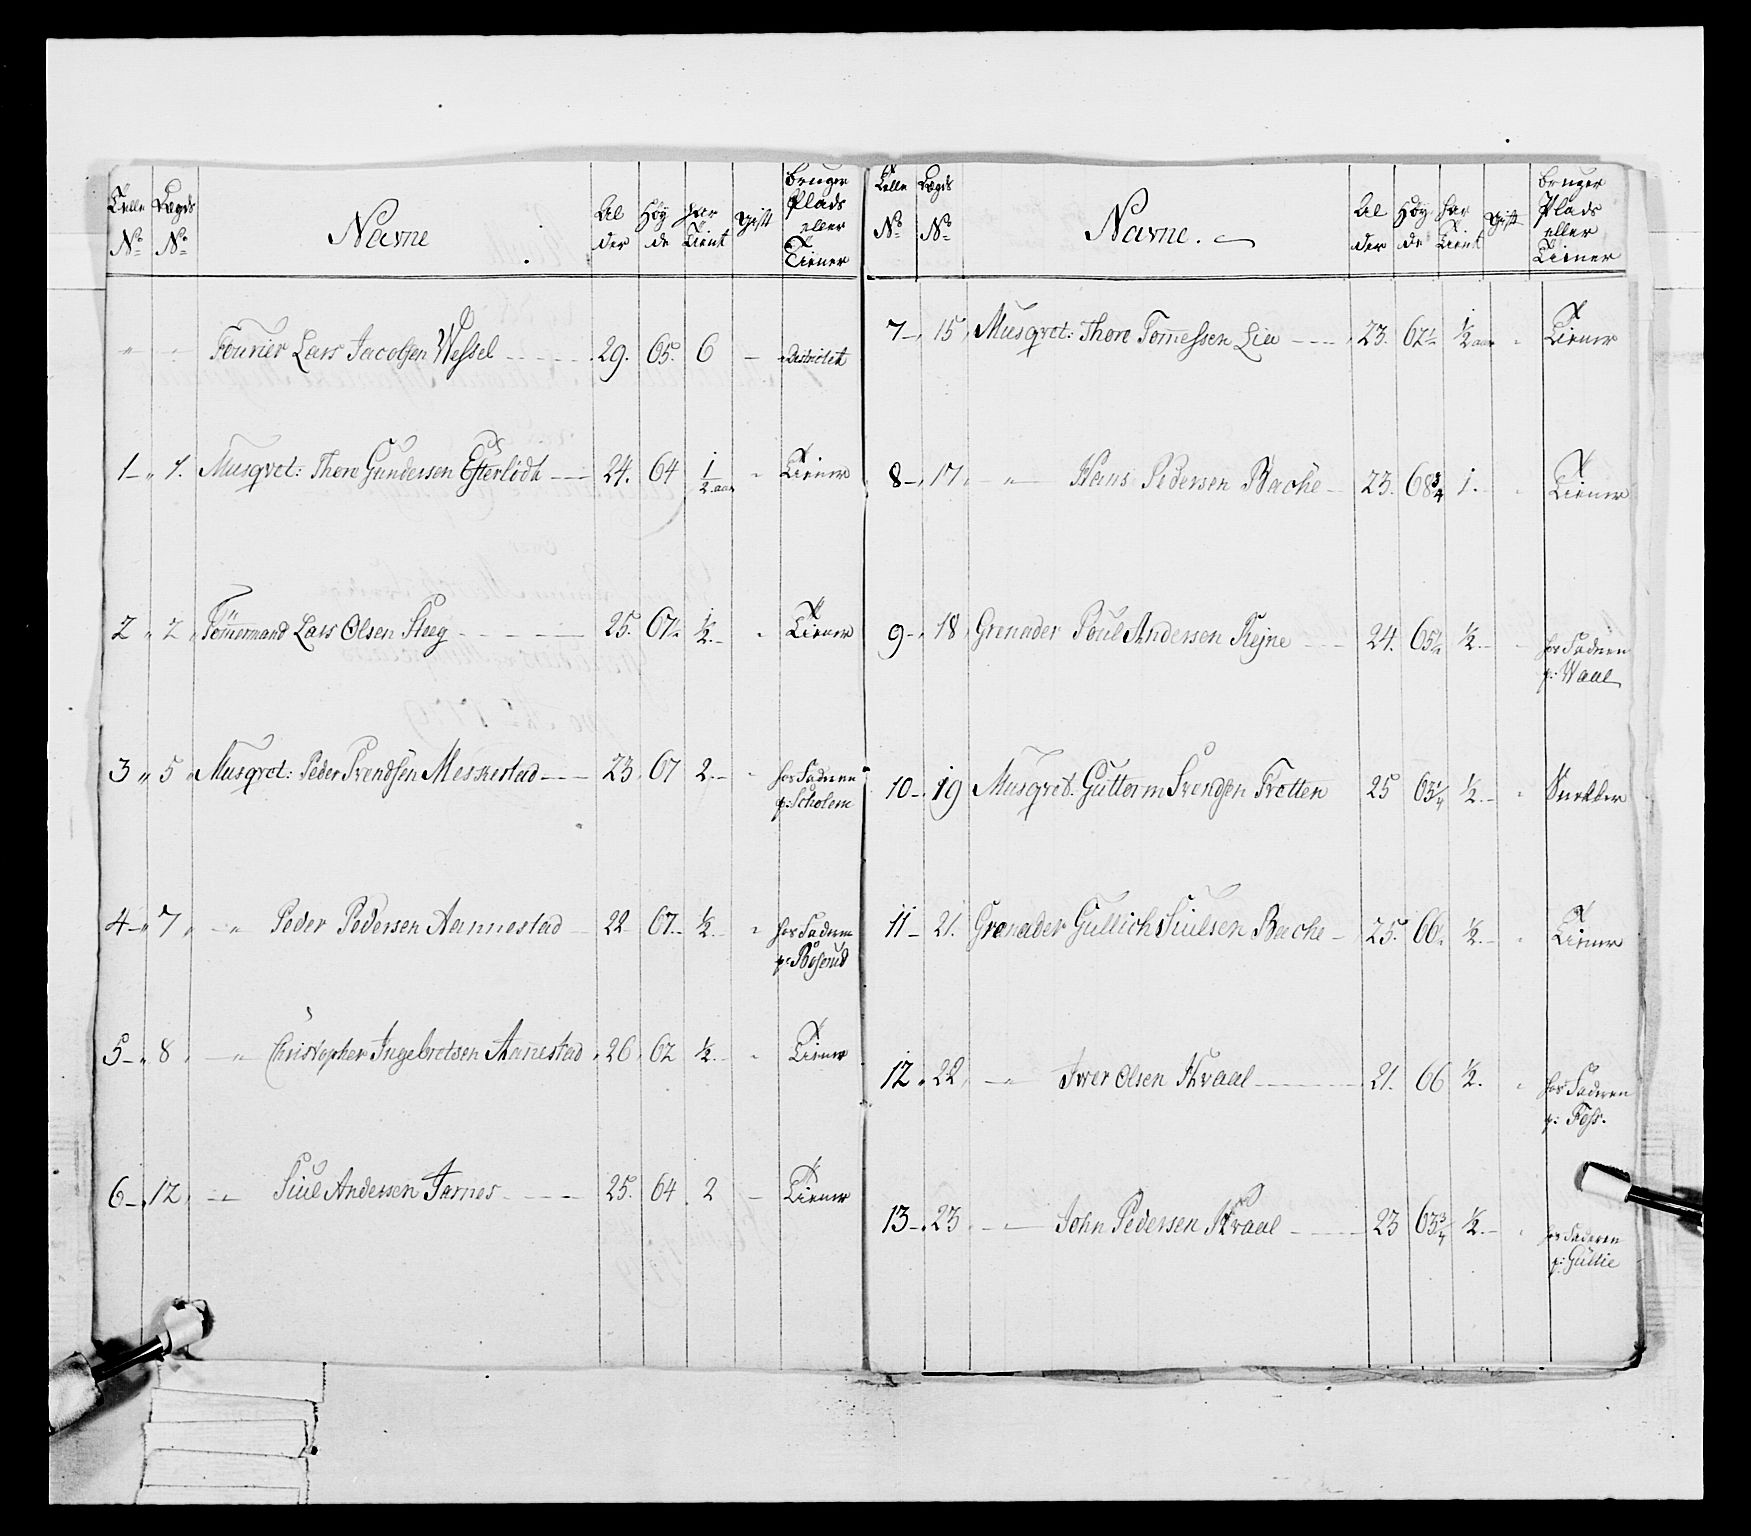 Tolle N° Lægds N° Navne Al der Höy de har Tient Gift bruger Plads eller Tiener
" " Fourier Lars Jacobsen Wessel 29. 65. 6 — Districtet
1 " 1. Musqvet: Thore Gundersen Efterlödt 24. 64 1/2 aar " Tiener
2 " 2 Tömmermand Lars Olsen Steeg 25. 67 ½ " Tiener
3 " 5 Musqvet: Peder Svendsen Meskestad 23 67 2 " hos Faderen
p: Scholem
4 " 7 " Peder Pedersen Aannestad 22 67 ½ " hos Faderen
p: Böserud
5 " 8 " Christopher Ingebretsen Aanestad 26 62 ½ " Tiener
6 " 12 " Siul Andersen Jarnes 25. 64 2 — Tiener
Tolle N° Lægds N° Navne. Al der Höy de har Tient Gift bruger Plads eller Tiener
7 15 Musqvet: Thore Tomessen Lie 23. 62½ ½ aar " Tiener
8 17 " Hans Pedersen Bache 23. 68¾ 1. " Tiener
9 18 Grenader Poul Andersen Rejne 24. 65½ ½ hos Faderen
p: Waal
10 19 Musqvet. Guttorm Svendsen Trotten 25 63¼ ½ " Snekker
11 21. Grenader Gullich Siulsen Bache 25. 66 ½ " Tiener
12 22 " Iver Olsen Kvaal 21. 66 ½ " hos Faderen
p: Foss.
13 23 " John Pedersen Kvaal 23 63¾ ½ " hos Faderen
p: Gullie